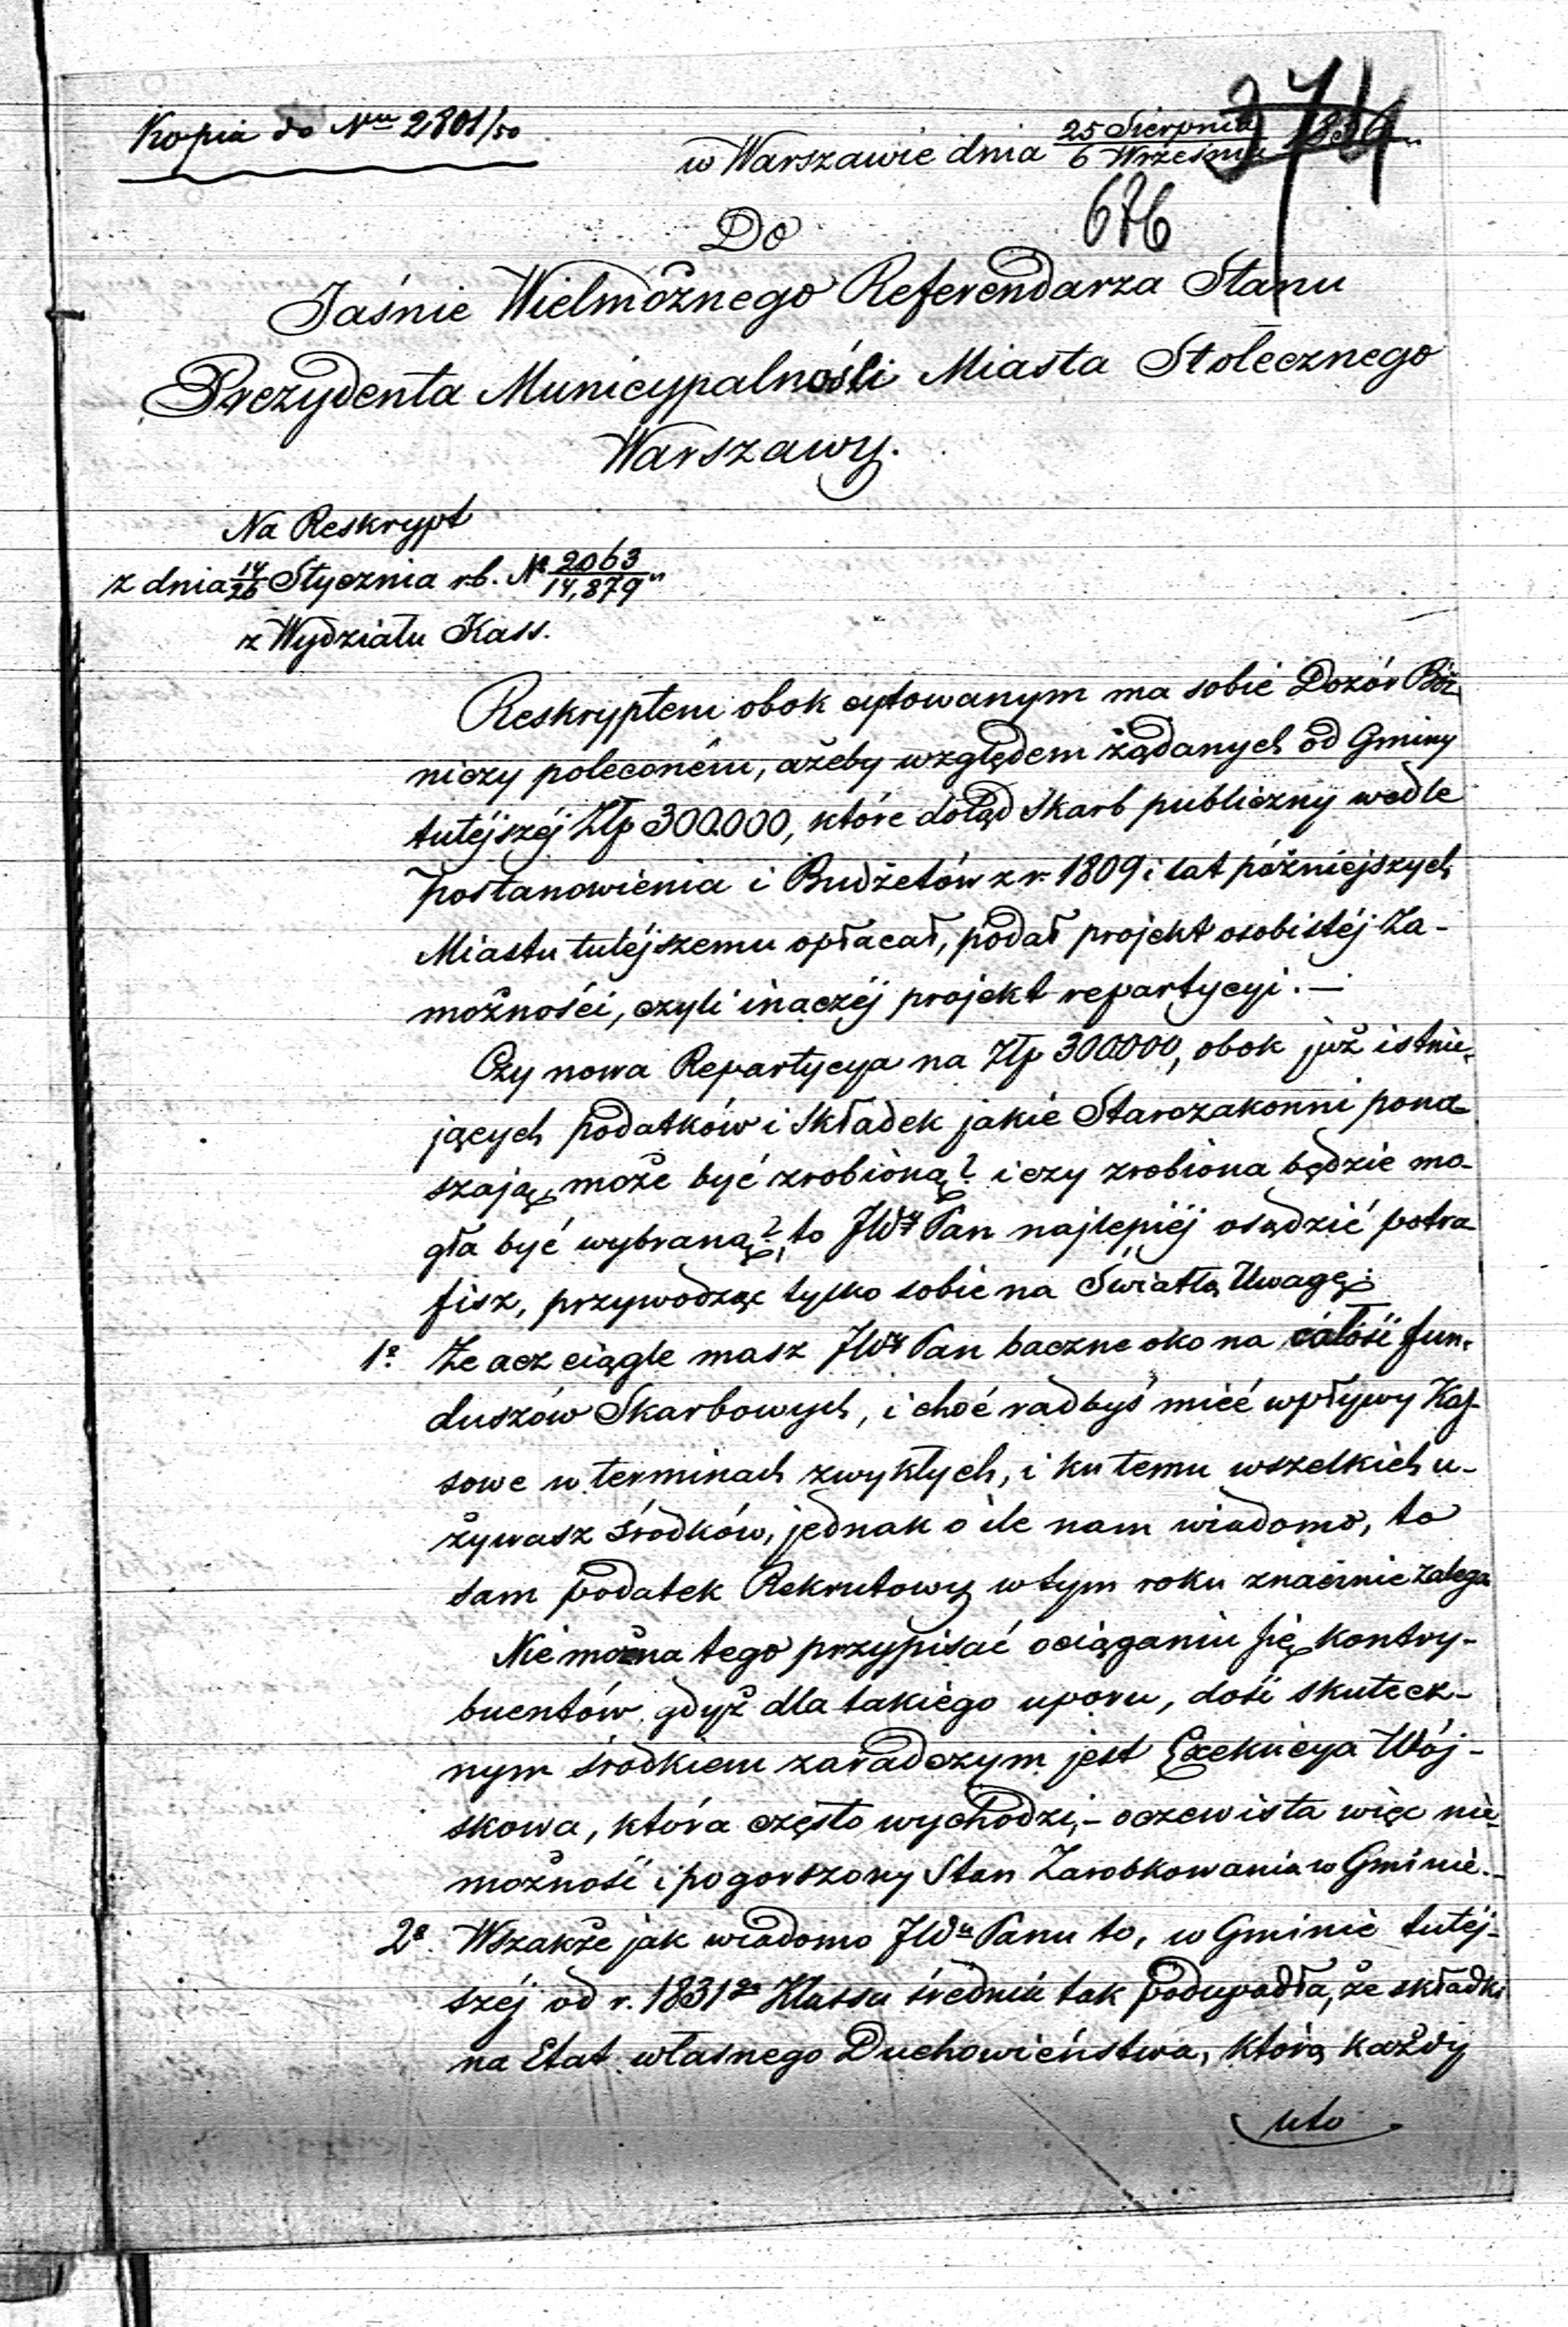 Kopia do Nru 2801/50
374
w Warszawie dnia 25 Sierpnia / 6 Września
676
Do
Jaśnie Wielmożnego Referendarza Stanu
Prezydenta Municypalności Miasta Stołecznego
Warszawy.
Na Reskrypt
z dnia 14/26 Stycznia r.b. No 2063/14,879
z Wydziału Kass.
Reskryptem obok cytowanym ma sobie Dozór Bóż
niczy poleconém, ażeby względem żądanych od Gminy
tutéjszéj Złp 300.000, które dotąd Skarb publiczny wedle
postanowienia i Budżetów z r. 1809 i lat późniejszych
Miastu tutéjszemu opłacał, podał projekt osobistéj Za-
możności, czyli inaczéj projekt repartycyi. —
Czy nowa Repartycya na Złp 300.000, obok już istnie-
jących podatków i Składek jakie Starozakonni pona
szają, może być zrobioną? i czy zrobiona będzie mo-
gła być wybraną?, to JWy Pan najlepiéj osądzić potra
fisz, przywodząc tylko sobie na Światłą Uwagę:
1o. Że acz ciągle masz JWy Pan baczne oko na całość fun-
duszów Skarbowych, i choć radbyś mieć wpływy Kas-
sowe w terminach zwykłych, i ku temu wszelkich u-
żywasz środków, jednak o ile nam wiadomo, to
sam podatek Rekrutowy w tym roku znacznie zalega
Nie można tego przypisać ociąganiu się kontry-
buentów, gdyż dla takiego uporu, dość skutecz-
nym środkiem zaradczym jest Exekucya Wój-
skowa, która często wychodzi, - oczewista więc nie-
możność i pogorszony Stan Zarobkowania w Gminie. -
2o. Wszakże jak wiadomo JWu Panu to, w Gminie tutéj-
széj od r. 1831go Klassa średnia tak podupadła, że składki
na Etat własnego Duchowieństwa, którą każdy
uto